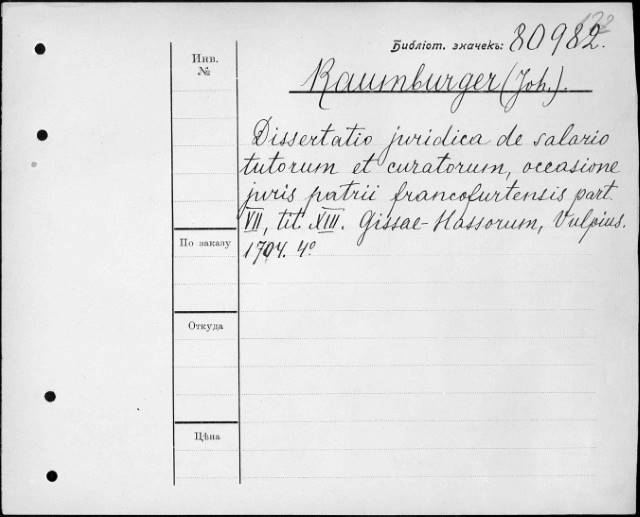 Библіот. значекъ: 80982.
Инв. №
Raumburger (Joh.).
Dissertatio juridica de salario
tutorum et curatorum, occasione
juris patrii francofurtensis part.
VII, tit. XIII. Gissae-Hassorum, Vulpius.
1704. 4º
По заказу
Откуда
Цѣна